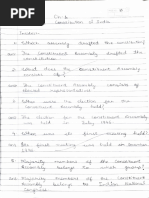 Ch 2
Constitution of India
1. Which assembly drafted the constitution?
Ans. The Constituent Assembly drafted the
constitution.
2. What the Constituent Assembly
consists of?
Ans. The Constituent Assembly consists of
elected representatives.
3. When was the election for the
Constituent Assembly held?
Ans. The election for the Constituent Assembly
was held in July 1946.
4. When was its first meeting held?
Ans. Its first meeting was held on December
1946.
5. Majority members of the Constituent
Assembly belongs from which group?
Ans. Majority members of the Constituent
Assembly belongs to Indian National
Congress.